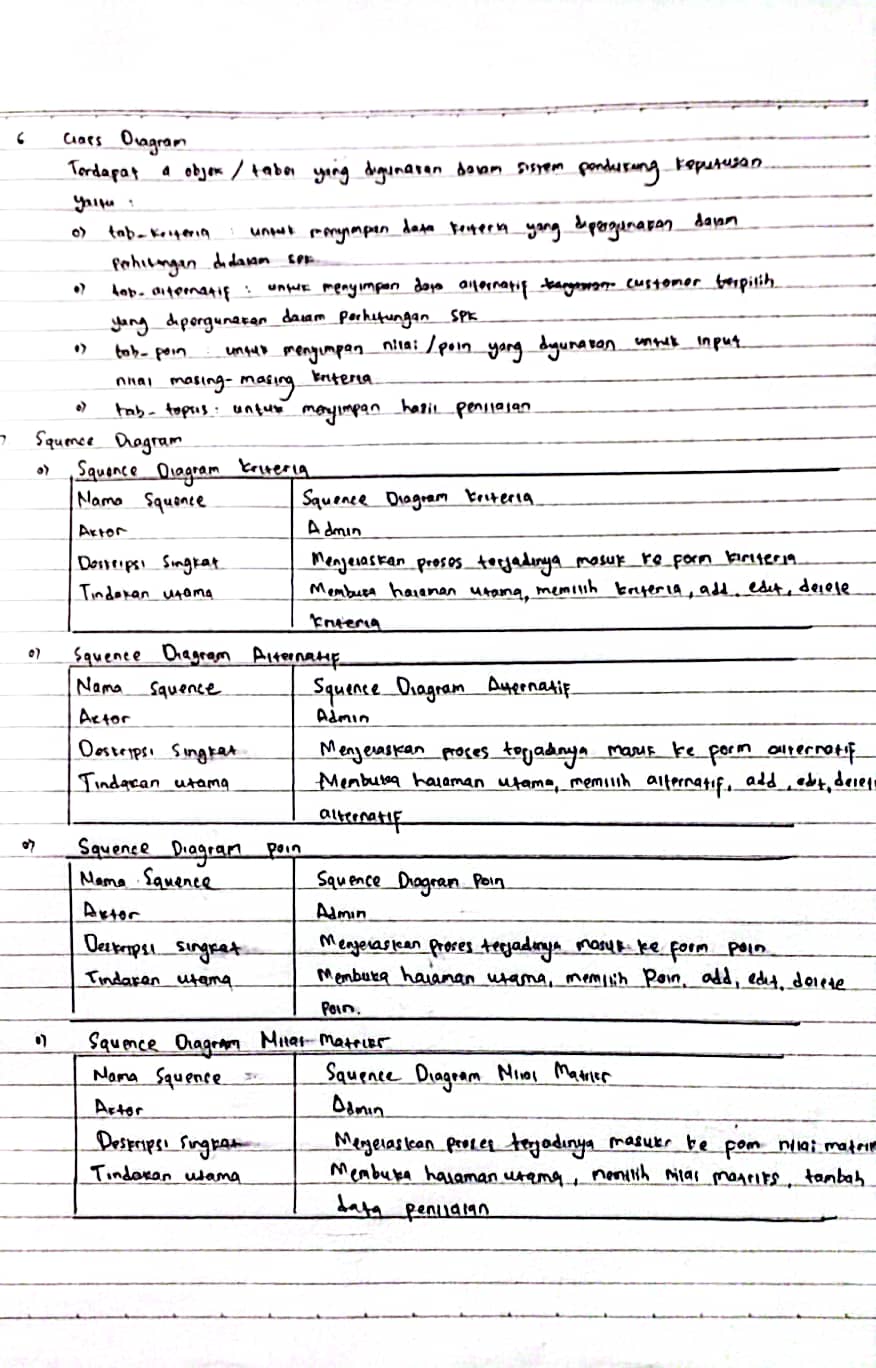 6 Class Diagram
Terdapat 4 objek / tabel yang digunakan dalam sistem pendukung keputusan
yaitu :
o) tab-kriteria : untuk menyimpan data kriteria yang dipergunakan dalam
perhitungan didalam SPK
o) tab-alternatif : untuk menyimpan data alternatif karyawan customer terpilih
yang dipergunakan dalam perhitungan SPK
o) tab-poin : untuk menyimpan nilai / poin yang digunakan untuk input
nilai masing-masing kriteria
o) tab-topsis : untuk menyimpan hasil penilaian
7 Squence Diagram
o) Squence Diagram kriteria
Nama Squence Squence Diagram kriteria
Aktor Admin
Deskripsi Singkat Menjelaskan proses terjadinya masuk ke form kiriteria
Tindakan utama Membuka halaman utama, memilih kriteria, add, edit, delete
kriteria
o) Squence Diagram Alternatif
Nama Squence Squence Diagram Alternatif
Aktor Admin
Deskripsi Singkat Menjelaskan proses terjadinya masuk ke form alternatif
Tindakan utama Membuka halaman utama, memilih alternatif, add, edit, delete
alternatif
o) Squence Diagram poin
Nama Squence Squence Diagram Poin
Aktor Admin
Deskripsi singkat Menjelaskan proses terjadinya masuk ke form poin
Tindakan utama Membuka halaman utama, memilih Poin, add, edit, delete
Poin.
o) Squence Diagram Nilai Matriks
Nama Squence Squence Diagram Nilai Matriks
Aktor Admin
Deskripsi Singkat Menjelaskan proses terjadinya masukr ke form nilai matrik
Tindakan utama Membuka halaman utama, memilih nilai matriks, tambah
data penilaian